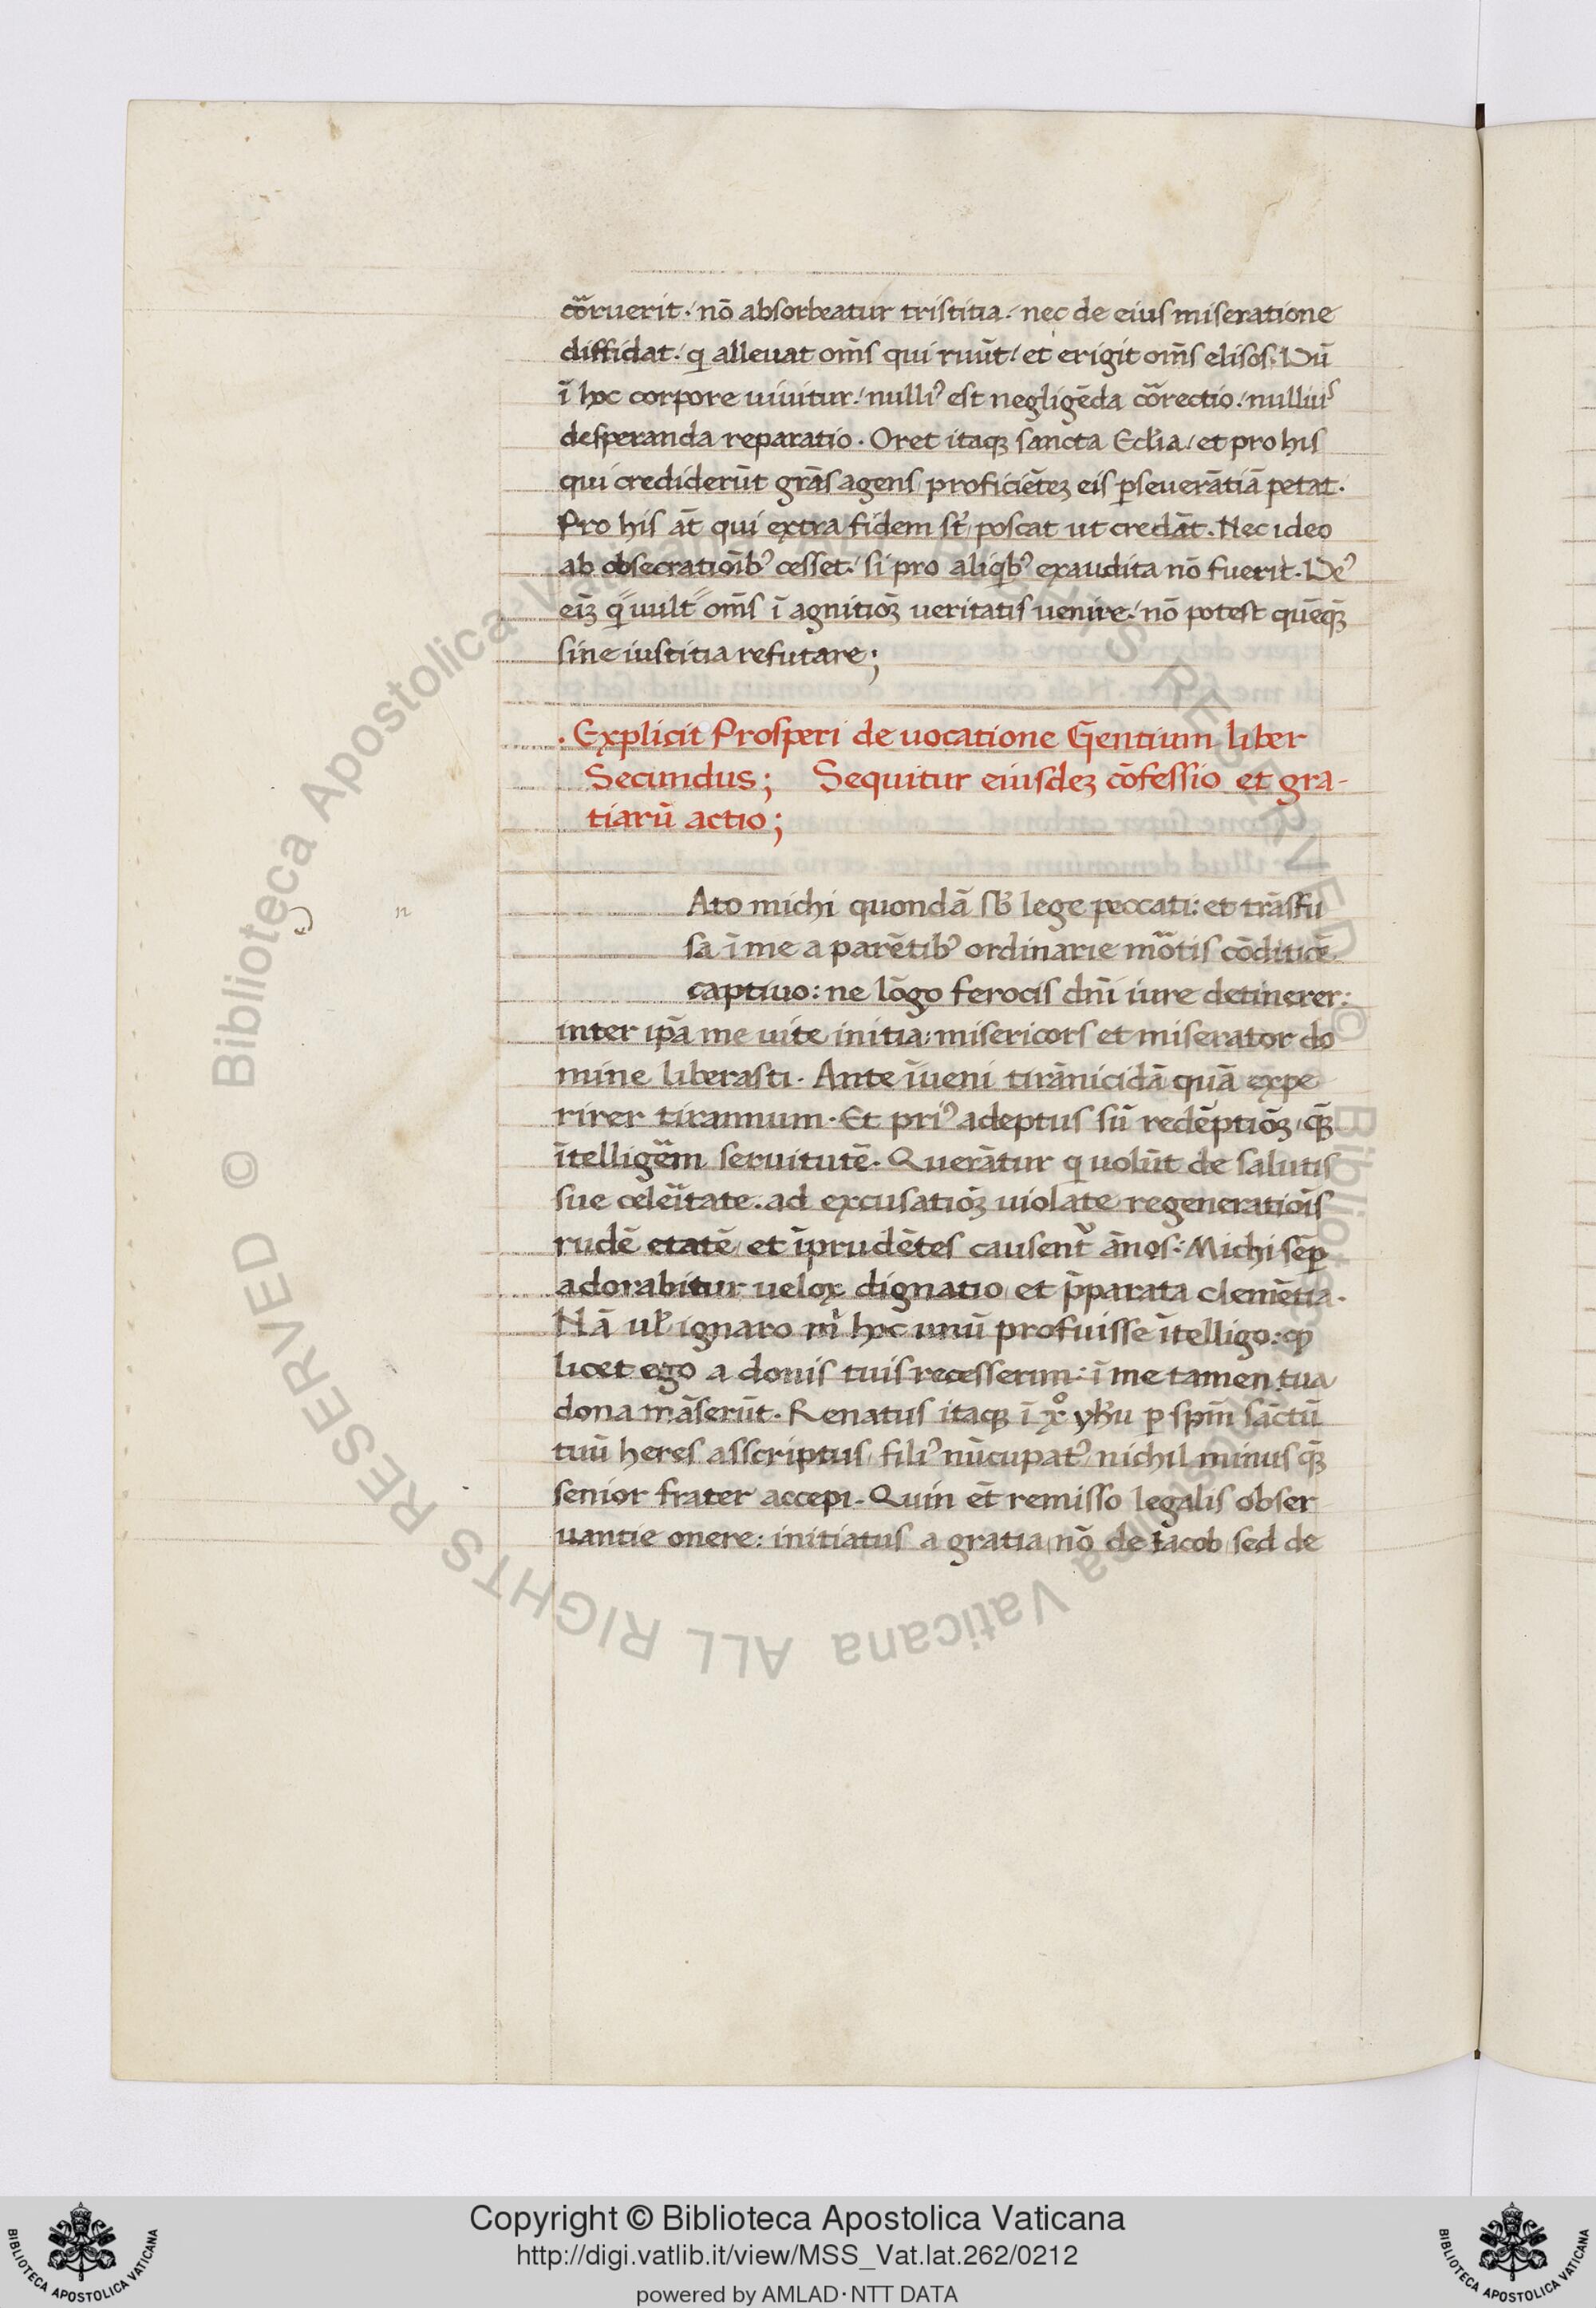 cõruerit · nõ absorbeatur tristitia · nec de eius miseratione
diffidat · q̃ alleuat om̃s qui ruũt / et erigit om̃s elisos · Dũ
ĩ hoc corpore uiuitur · nulliꝰ est negligẽda cõrectio · nulliuꝰ
desperanda reparatio · Oret itaqꝫ sancta Ecl̃ia / et pro his
qui crediderũt gr̃as agens proficiẽteꝫ eis ꝑseuerãtiã petat ·
Pro his ãt qui extra fidem st̃ poscat ut credãt · Nec ideo
ab obsecratiõibꝰ cesset · si pro aliqͥbꝰ exaudita nõ fuerit · Deꝰ
eĩꝫ qͥ uult om̃s ĩ agnitiõꝫ ueritatis uenire · nõ potest quẽqꝫ̃
sine iustitia refutare ;
· Explicit Prosperi de uocatione Gentium liber
Secundus ; Sequitur eiusdeꝫ cõfessio et gra-
tiarũ actio ;
n
Ato michi quondã sb̃ lege peccati : et trãsfu
sa ĩ me a parẽtibꝰ ordinarie mõtis cõditiõẽ
captiuo : ne lõgo ferocis dñi iure detinerer :
inter ip̃a me uite initia : misericors et miserator do
mine liberasti · Ante ĩueni tirãnicidã quã expe
rirer tirannum · Et priꝰ adeptus sũ redẽptiõꝫ qꝫ̃
ĩtelligẽm seruitutẽ · Querãtur q̃ uolũt de salutis
sue celeĩtate · ad excusatiõꝫ uiolate regeneratiõis
rudẽ etatẽ et ĩprudẽtes causentᷣ ãnos : Michi sẽꝑ
adorabitur uelox dignatio et p̃parata clemẽtia ·
Nã ul̃ ignaro mͥ hoc unũ profuisse ĩtelligo : ꝙ
licet ego a donis tuis recesserim : ĩ me tamen tua
dona mãserũt · Renatus itaqꝫ ĩ xº yh̃u ꝑ spm̃ sãctũ
tuũ heres asscriptus filiꝰ nũcupatꝰ nichil minus qꝫ̃
senior frater accepi · Quin ẽt remisso legalis obser
uantie onere : initiatus a gratia nõ de Iacob sed de
Copyright © Biblioteca Apostolica Vaticana
http://digi.vatlib.it/view/MSS_Vat.lat.262/0212
powered by AMLAD·NTT DATA
BIBLIOTECA APOSTOLICA VATICANA
BIBLIOTECA APOSTOLICA VATICANA